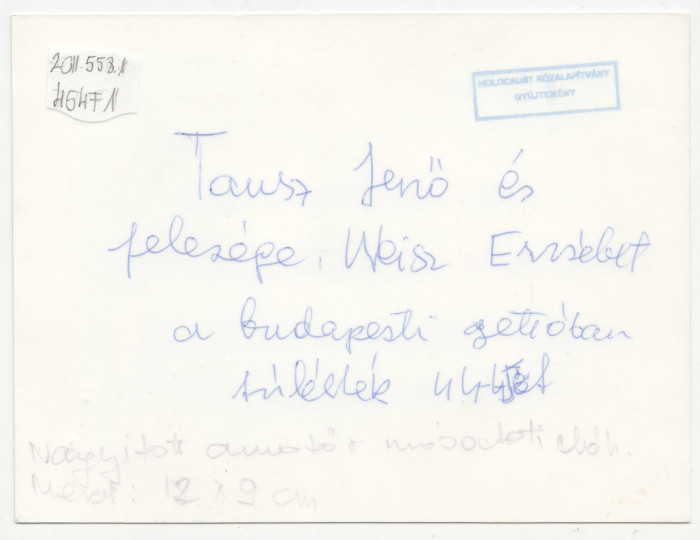 2011.558.1
46471
HOLOCAUST KÖZALAPÍTVÁNY
GYŰJTEMÉNY
Tausz Jenő és
felesége, Weisz Erzsébet
a budapesti gettóban
túlélték 44
Nagyított amatőr másodlati
Méret: 12 x 9 cm